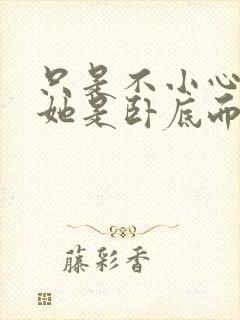 只是不小心
她是卧底而
藤彩香